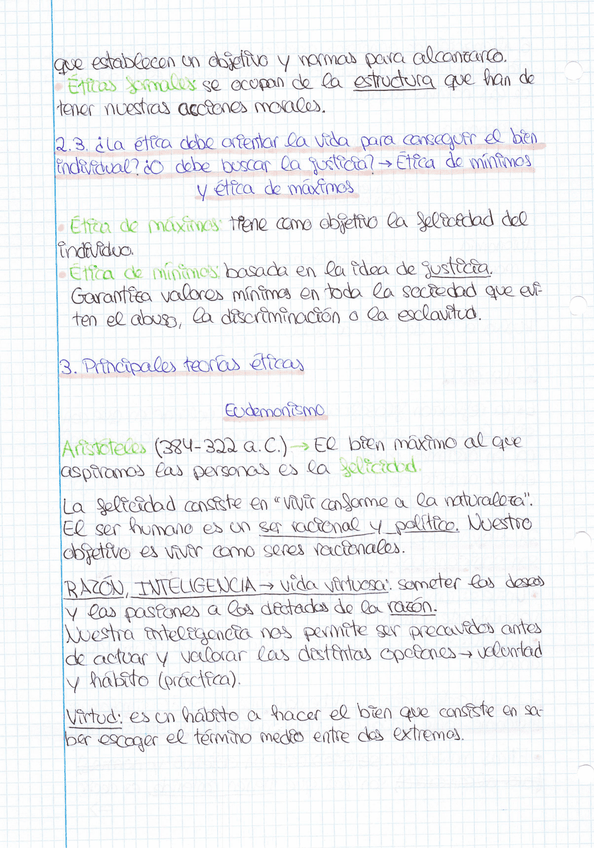 que establecen un objetivo y normas para alcanzarlo.
• Éticas formales se ocupan de la estructura que han de
tener nuestras acciones morales.
2.3. ¿La ética debe orientar la vida para conseguir el bien
individual? ¿O debe buscar la justicia? → Ética de mínimos
y ética de máximos
• Ética de máximos: tiene como objetivo la felicidad del
individuo.
• Ética de mínimos: basada en la idea de justicia.
Garantiza valores mínimos en toda la sociedad que evi-
ten el abuso, la discriminación o la esclavitud.
3. Principales teorías éticas
Eudemonismo
Aristóteles (384-322 a.C.) → El bien máximo al que
aspiramos las personas es la felicidad.
La felicidad consiste en "vivir conforme a la naturaleza".
El ser humano es un ser racional y político. Nuestro
objetivo es vivir como seres racionales.
RAZÓN, INTELIGENCIA → vida virtuosa: someter los deseos
y las pasiones a los dictados de la razón.
Nuestra inteligencia nos permite ser precavidos antes
de actuar y valorar las distintas opciones → voluntad
y hábito (práctica).
Virtud: es un hábito a hacer el bien que consiste en sa-
ber escoger el término medio entre dos extremos.